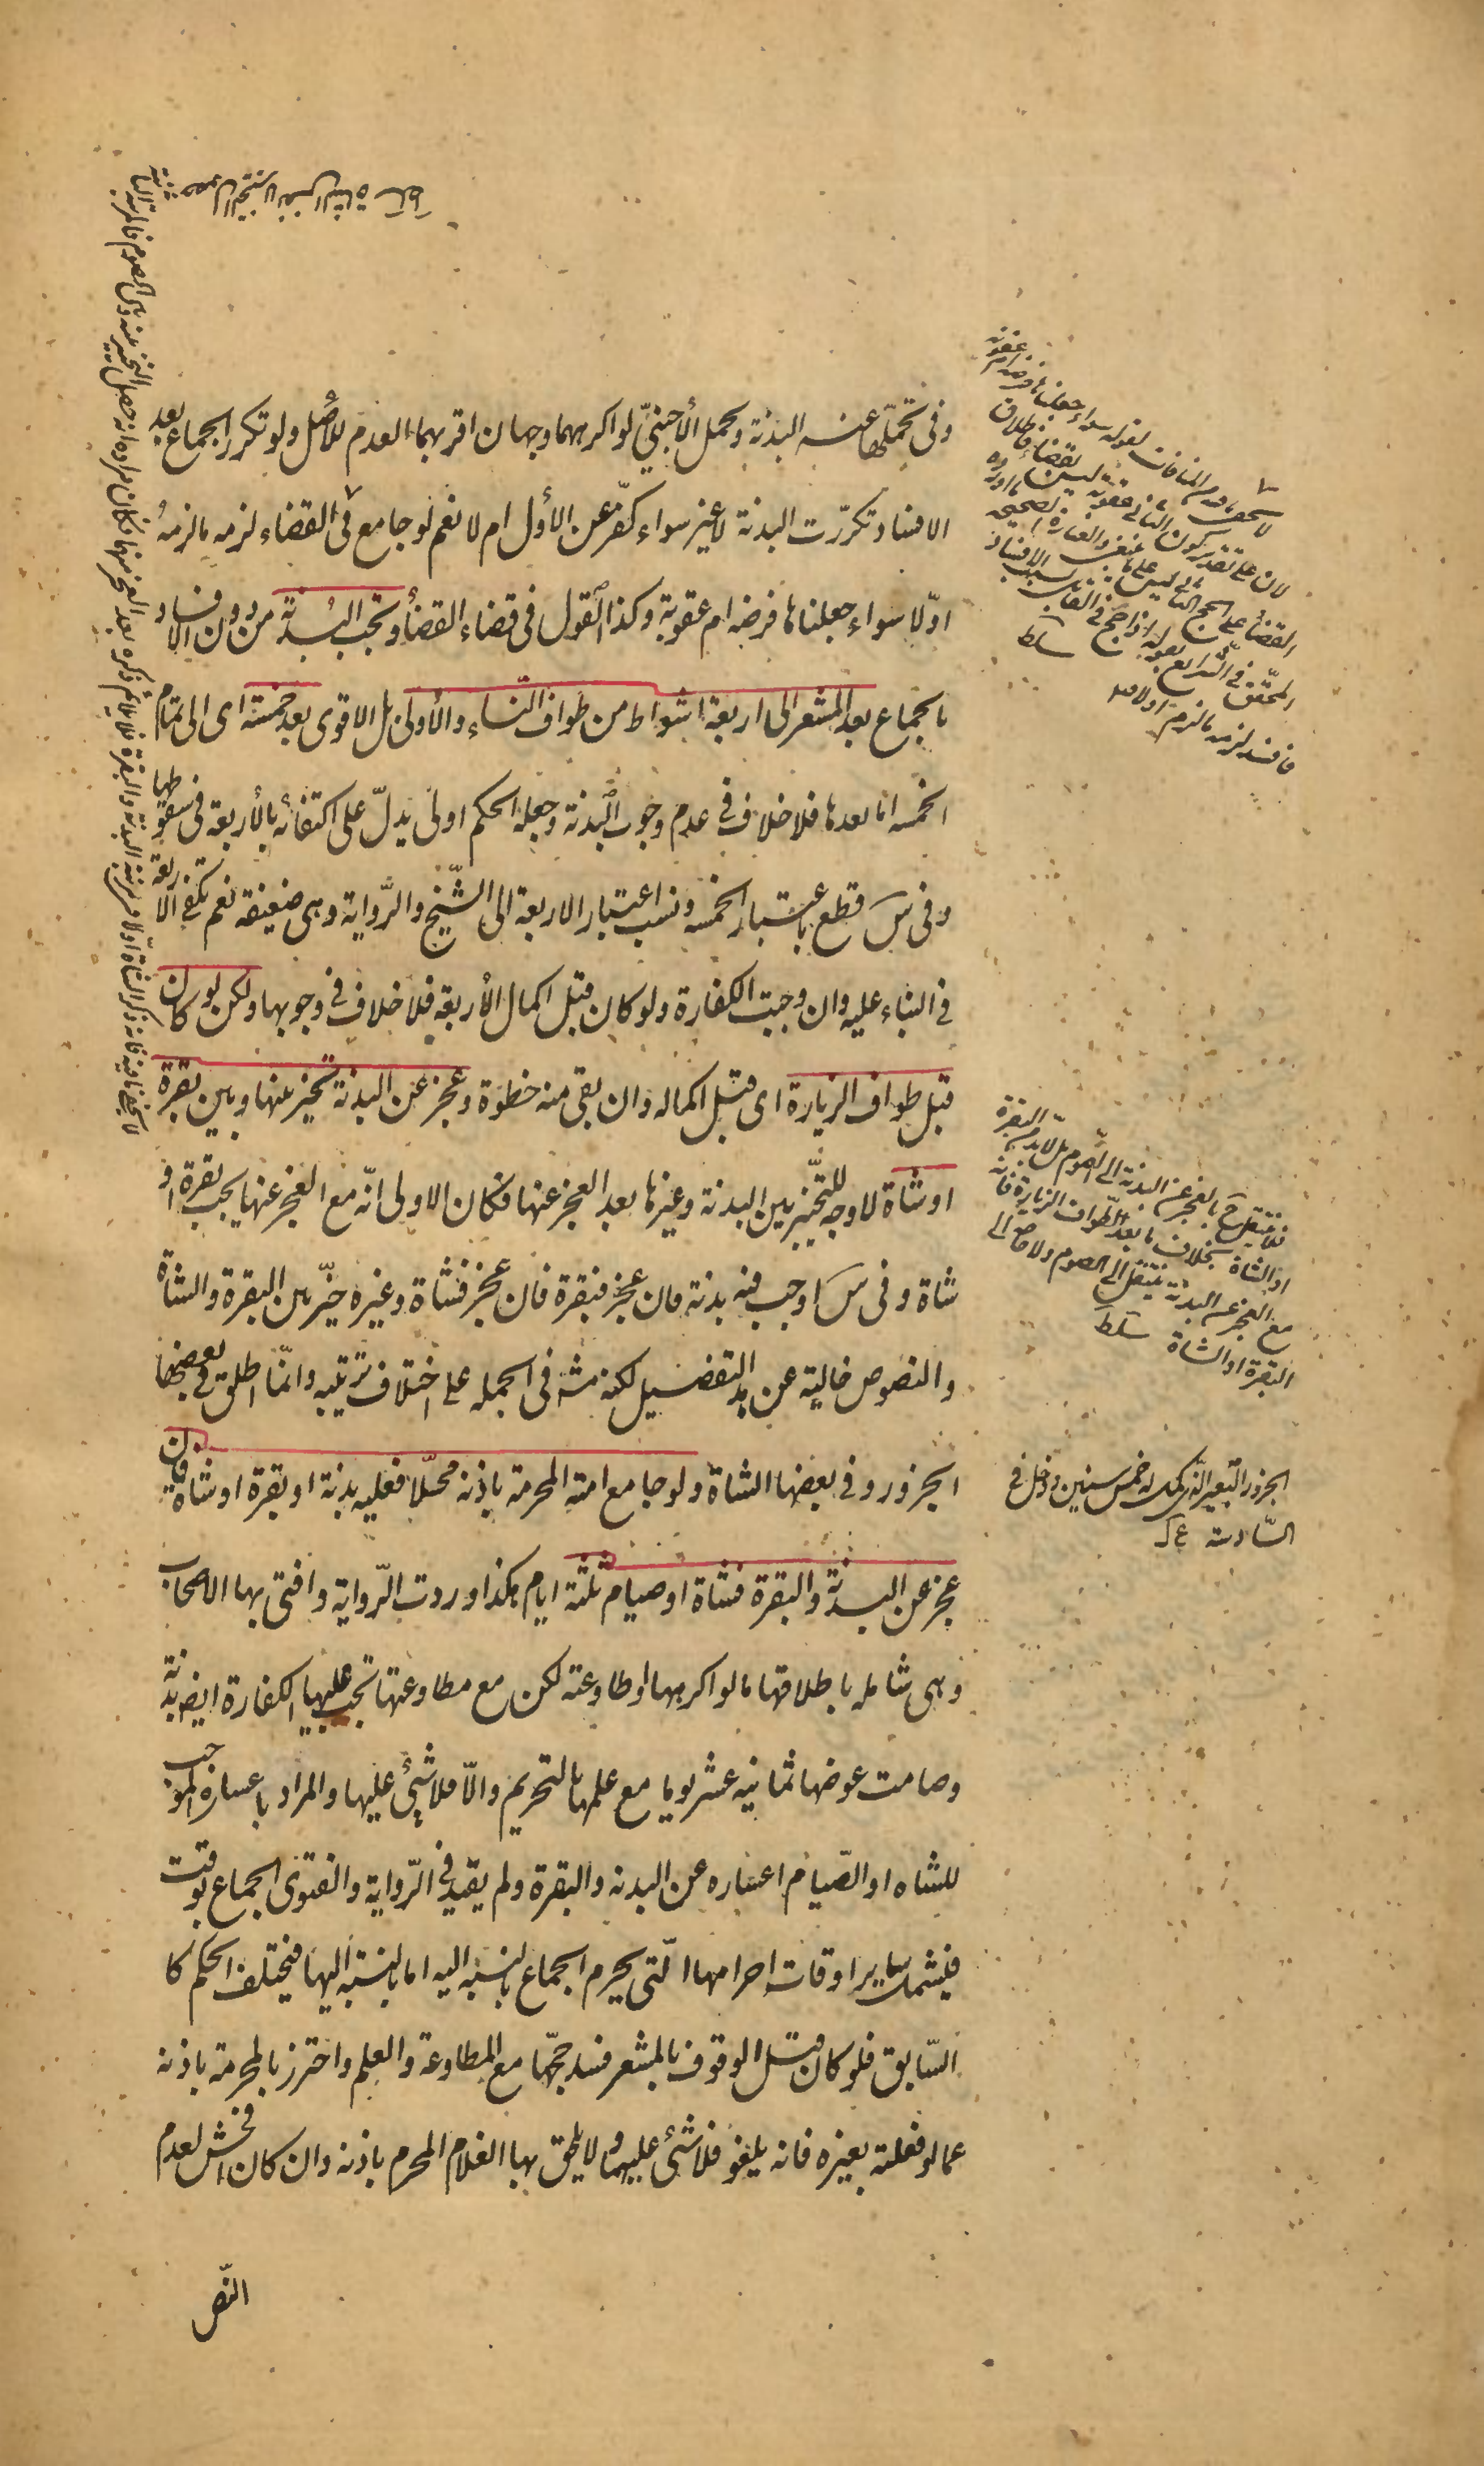 وفى تحملها عنه البدنة وتحمل الأجنبيّ لو اكرههما وجهان اقربهما العدم للأصل ولو تكرر الجماع بعد
الافساد تكرّرت البدنة لا غير سواء كفّر عن الأول ام لا نعم لو جامع فى القضاء لزمه ما لزمه
اوّلا سواء جعلناها فرضه ام عقوبة وكذا القول فى قضاء القضاء وتجب البدنة من دون الافساد
بالجماع بعد المشعر الى اربعة اشواط من طواف النّساء والأولى بل الاقوى بعد خمسة اى الى تمام
الخمسه اما بعدها فلا خلاف فى عدم وجوب البدنة وجعله الحكم اولى يدلّ على اكتفائه بالأربعة فى سقوطها
وفى س قطع باعتبار الخمسه ونسب اعتبار الاربعة الى الشّيخ والرّواية وهى ضعيفه نعم تكفى الاربعة
فى البناء عليه وان وجبت الكفارة ولو كان قبل اكمال الأربعة فلا خلاف فى وجوبها ولكن لو كان
قبل طواف الزيارة اى قبل اكماله وان بقى منه خطوة وعجز عن البدنة تخيّر بينها وبين بقرة
او شاة لا وجه للتخيّير بين البدنة وغيرها بعد العجز عنها فكان الاولى انّه مع العجز عنها يجب بقرة او
شاة وفى س اوجب فيه بدنة فان عجز فبقرة فان عجز فشاة وغيره خيّر بين البقرة والشاة
والنصوص خالية عن هذا التفضيل لكنه مشهور فى الجمله على اختلاف ترتيبه وانّما اطلق فى بعضها
الجزور وفى بعضها الشاة ولو جامع امته المحرمة باذنه محلّا فعليه بدنة او بقرة او شاة فان
عجز عن البدنة والبقرة فشاة او صيام ثلثة ايام هكذا وردت الرّواية وافتى بها الاصحاب
وهى شامله باطلاقها ما لو اكرهها او طاوعته لكن مع مطاوعتها تجب عليها الكفارة ايضا بدنة
وصامت عوضها ثمانيه عشر يوما مع علمها بالتحريم والّا فلا شئ عليها والمراد باعساره الموجب
للشاه او الصّيام اعساره عن البدنه والبقرة ولم يقيد فى الرّواية والفتوى الجماع بوقت
فيشمل ساير اوقات احرامها الّتى يحرم الجماع بالنسبه اليه اما بالنسبة اليها فيختلف الحكم كا
السّابق فلو كان قبل الوقوف بالمشعر فسد حجّها مع المطاوعة والعلم واحترز بالمحرمة باذنه
عما لو فعلته بغيره فانه يلغو فلا شئ عليهما ولا يلحق بها الغلام المحرم باذنه وان كان افحش لعدم
النّص
القضاء على الحج الثانى ليس على
فافسد لزمه ما لزم اولا
سلط
فلا ينتقل ح بالعجز عن البدنة الى الصوم بل لا بد من البقرة
او الشاة بخلاف ما بعد الطواف الزيارة فانه
مع العجز عن البدنة ينتقل الى الصوم ولا حاجة الى
البقرة او الشاة سلط
الجزور البعير الذى كمل له خمس سنين ودخل فى
السّادسة